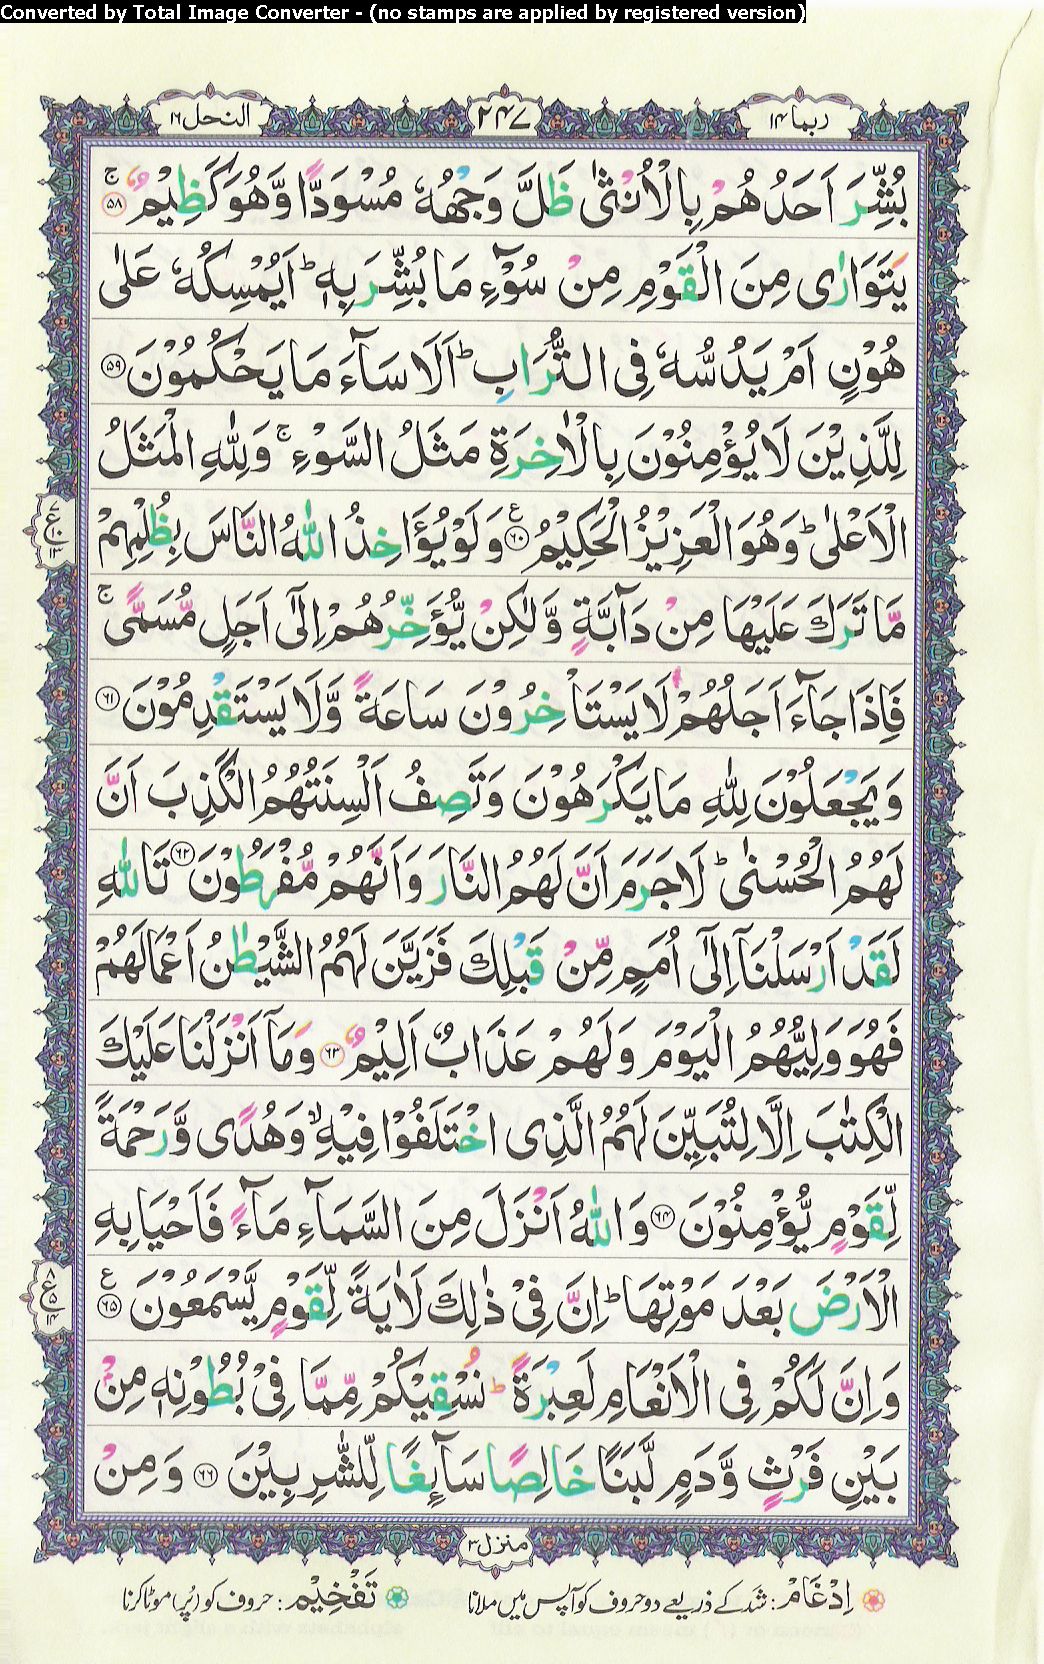 Converted by Total Image Converter - (no stamps are applied by registered version)
ربما ۱۴ ۲۴۷ النحل ۱۶
بُشِّرَ اَحَدُهُمْ بِالْاُنْثٰى ظَلَّ وَجْهُهٗ مُسْوَدًّا وَّهُوَ كَظِيْمٌ ۚ۝۵۸
يَتَوَارٰى مِنَ الْقَوْمِ مِنْ سُوْٓءِ مَا بُشِّرَ بِهٖ ؕ اَيُمْسِكُهٗ عَلٰى
هُوْنٍ اَمْ يَدُسُّهٗ فِى التُّرَابِ ؕ اَلَا سَآءَ مَا يَحْكُمُوْنَ ۝۵۹
لِلَّذِيْنَ لَا يُؤْمِنُوْنَ بِالْاٰخِرَةِ مَثَلُ السَّوْءِ ۚ وَلِلّٰهِ الْمَثَلُ
الْاَعْلٰى ؕ وَهُوَ الْعَزِيْزُ الْحَكِيْمُ ۝۶۰ ع وَلَوْ يُؤَاخِذُ اللّٰهُ النَّاسَ بِظُلْمِهِمْ
مَّا تَرَكَ عَلَيْهَا مِنْ دَآبَّةٍ وَّلٰكِنْ يُّؤَخِّرُهُمْ اِلٰٓى اَجَلٍ مُّسَمًّى ۚ
فَاِذَا جَآءَ اَجَلُهُمْ لَا يَسْتَاْخِرُوْنَ سَاعَةً وَّلَا يَسْتَقْدِمُوْنَ ۝۶۱
وَيَجْعَلُوْنَ لِلّٰهِ مَا يَكْرَهُوْنَ وَتَصِفُ اَلْسِنَتُهُمُ الْكَذِبَ اَنَّ
لَهُمُ الْحُسْنٰى ؕ لَا جَرَمَ اَنَّ لَهُمُ النَّارَ وَاَنَّهُمْ مُّفْرَطُوْنَ ۝۶۲ تَاللّٰهِ
لَقَدْ اَرْسَلْنَاۤ اِلٰٓى اُمَمٍ مِّنْ قَبْلِكَ فَزَيَّنَ لَهُمُ الشَّيْطٰنُ اَعْمَالَهُمْ
فَهُوَ وَلِيُّهُمُ الْيَوْمَ وَلَهُمْ عَذَابٌ اَلِيْمٌ ۝۶۳ وَمَاۤ اَنْزَلْنَا عَلَيْكَ
الْكِتٰبَ اِلَّا لِتُبَيِّنَ لَهُمُ الَّذِى اخْتَلَفُوْا فِيْهِ ۙ وَهُدًى وَّرَحْمَةً
لِّقَوْمٍ يُّؤْمِنُوْنَ ۝۶۴ وَاللّٰهُ اَنْزَلَ مِنَ السَّمَآءِ مَآءً فَاَحْيَا بِهِ
الْاَرْضَ بَعْدَ مَوْتِهَا ؕ اِنَّ فِىْ ذٰلِكَ لَاٰيَةً لِّقَوْمٍ يَّسْمَعُوْنَ ۝۶۵ ع
وَاِنَّ لَكُمْ فِى الْاَنْعَامِ لَعِبْرَةً ؕ نُسْقِيْكُمْ مِّمَّا فِىْ بُطُوْنِهٖ مِنْ
بَيْنِ فَرْثٍ وَّدَمٍ لَّبَنًا خَالِصًا سَآئِغًا لِّلشّٰرِبِيْنَ ۝۶۶ وَمِنْ
منزل ۳
اِدْغَام : شد کے ذریعے دو حروف کو آپس میں ملانا تَفْخِیْم : حروف کو (پُر) موٹا کرنا